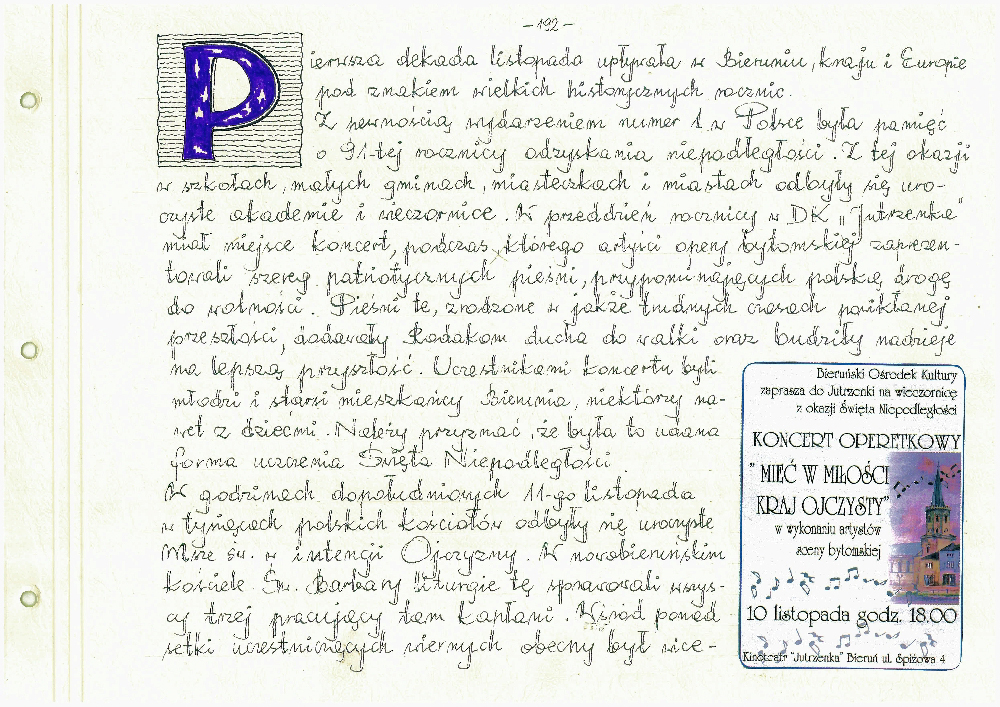 - 192 -
Pierwsza dekada listopada upływała w Bieruniu, kraju i Europie
pod znakiem wielkich historycznych rocznic.
Z pewnością wydarzeniem numer 1 w Polsce była pamięć
o 91-tej rocznicy odzyskania niepodległości. Z tej okazji
w szkołach, małych gminach, miasteczkach i miastach odbyły się uro-
czyste akademie i wieczornice. W przeddzień rocznicy w DK „Jutrzenka"
miał miejsce koncert, podczas którego artyści opery bytomskiej zaprezen-
towali szereg patriotycznych pieśni, przypominających polską drogę
do wolności. Pieśni te, zrodzone w jakże trudnych czasach powikłanej
przeszłości, dodawały Rodakom ducha do walki oraz budziły nadzieje
na lepszą przyszłość. Uczestnikami koncertu byli
młodzi i starsi mieszkańcy Bierunia, niektórzy na-
wet z dziećmi. Należy przyznać, że była to udana
forma uczczenia Święta Niepodległości.
W godzinach dopołudniowych 11-go listopada
w tysiącach polskich kościołów odbyły się uroczyste
Msze św. w intencji Ojczyzny. W nowobieruńskim
kościele Św. Barbary liturgię tę sprawowali wszys-
cy trzej pracujący tam kapłani. Wśród ponad
setki uczestniczących wiernych obecny był wice-
Bieruński Ośrodek Kultury
zaprasza do Jutrzenki na wieczornicę
z okazji Święta Niepodległości
KONCERT OPERETKOWY
" MIEĆ W MIŁOŚCI
KRAJ OJCZYSTY"
w wykonaniu artystów
sceny bytomskiej
10 listopada godz. 18.00
Kinoteatr "Jutrzenka" Bieruń ul. Spiżowa 4